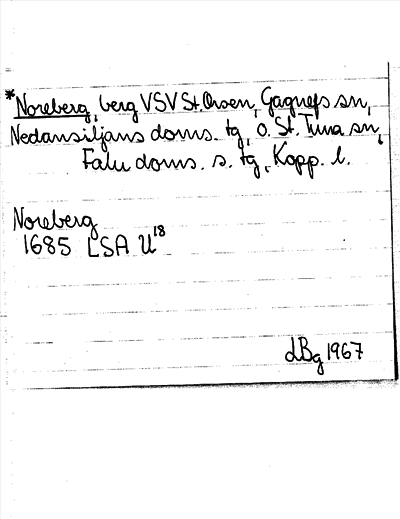 *Noreberg, berg VSV St. Orsen, Gagnefs sn,
Nedansiljans doms. tg, o. St. Tuna sn,
Falu doms. s. tg, Kopp. l.
Noreberg
1685 LSA U18
dBg 1967